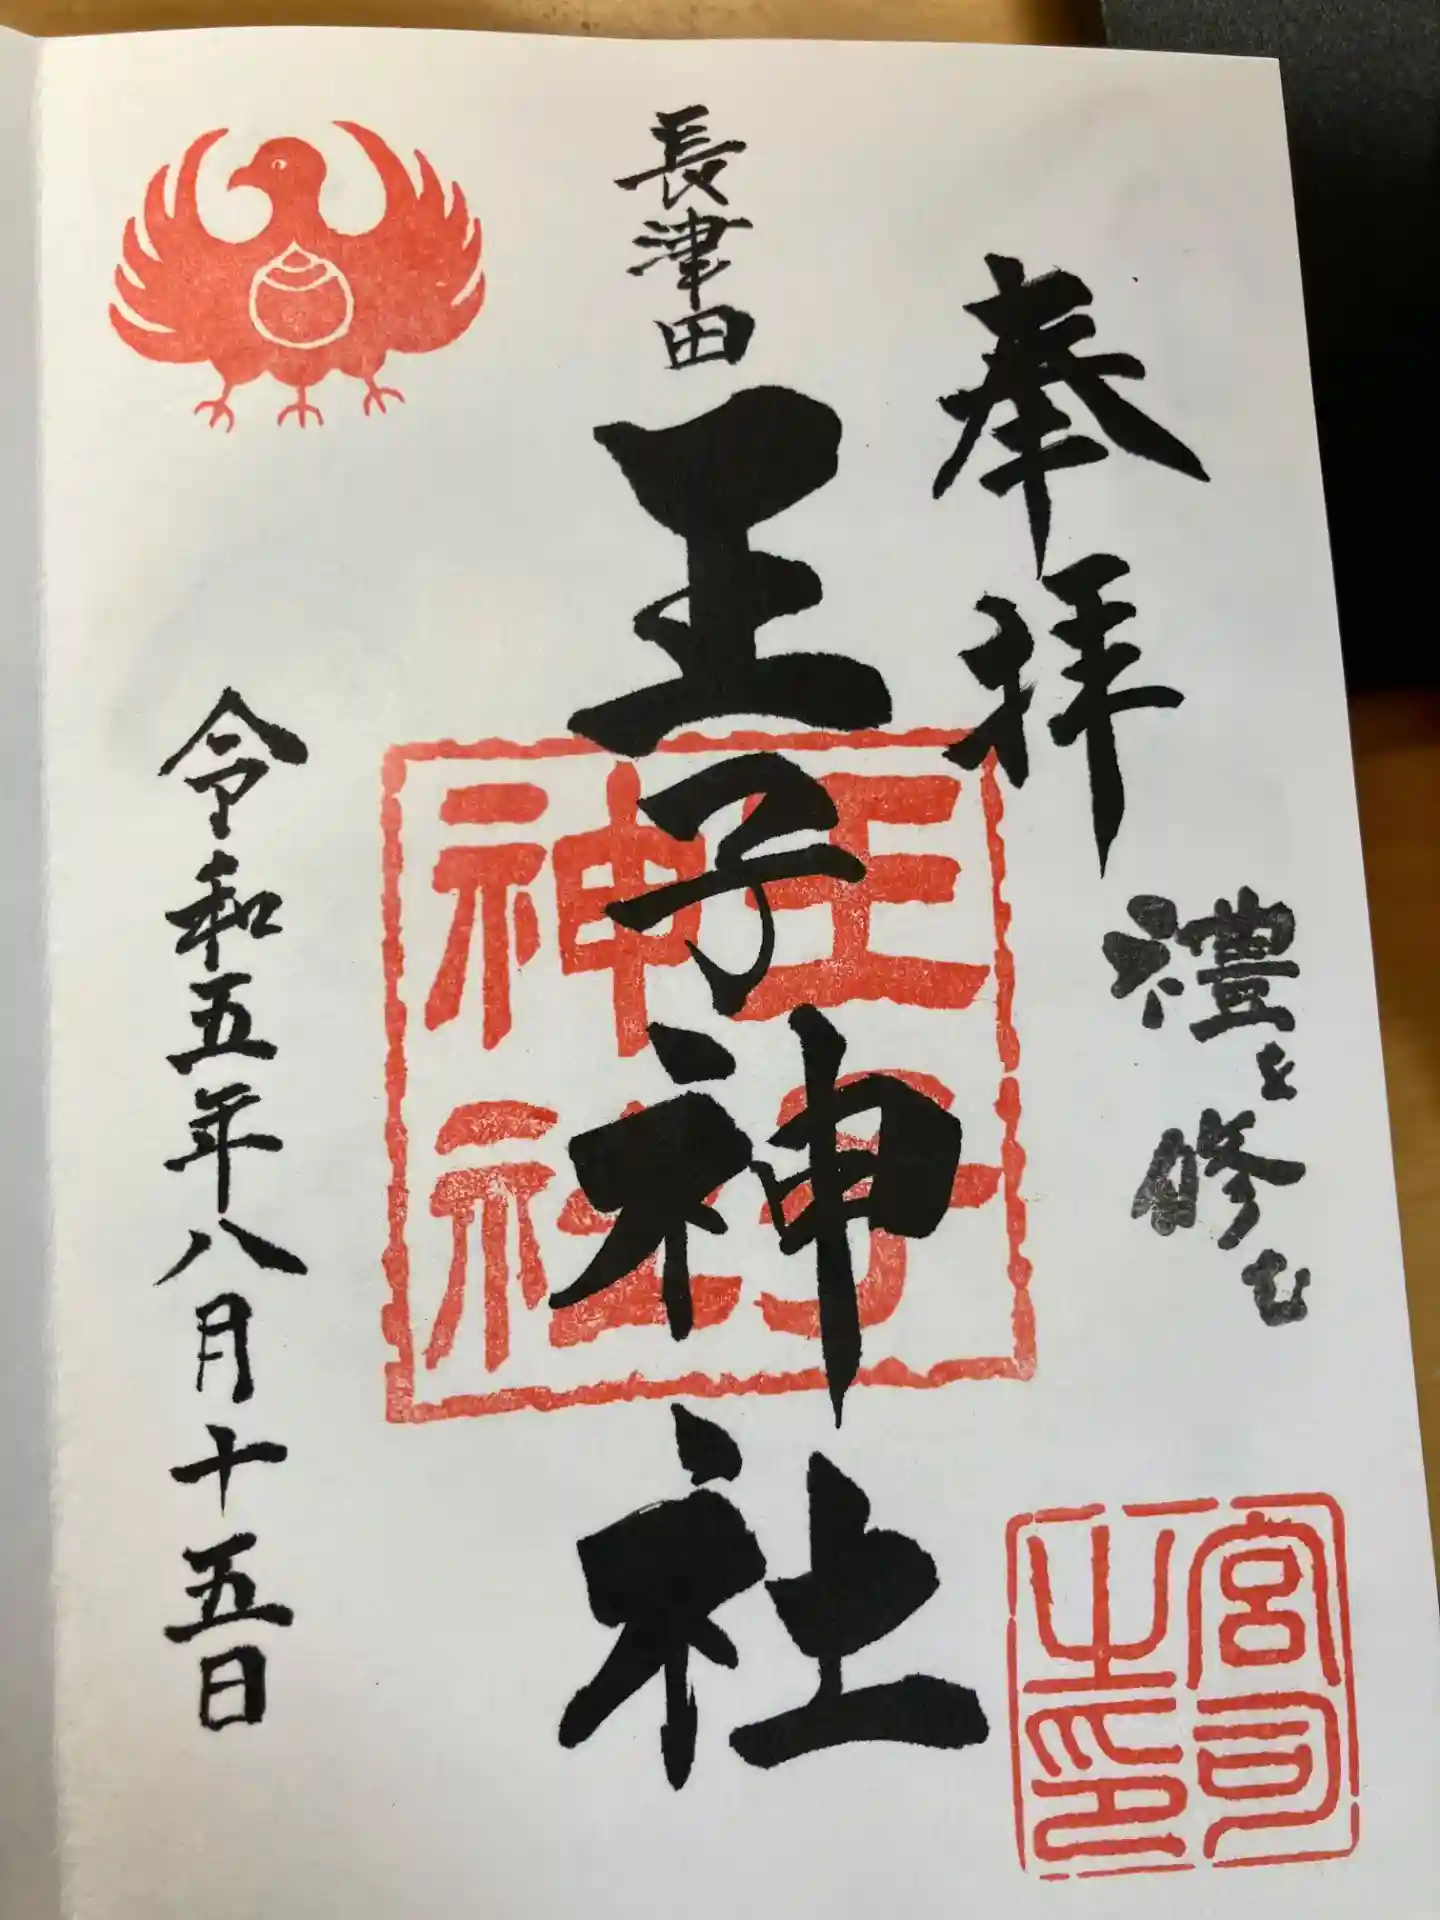 奉拝
禮を修む
宮司之印
長津田
王子神社
王子神社
令和五年八月十五日